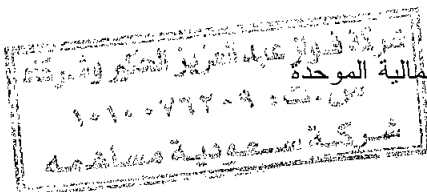 شركة فواز عبدالعزيز الحكير وشركاه
مالية الموحدة
س.ت: ١٠١٠٠٧٦٢٠٩
شركة سعودية مساهمة